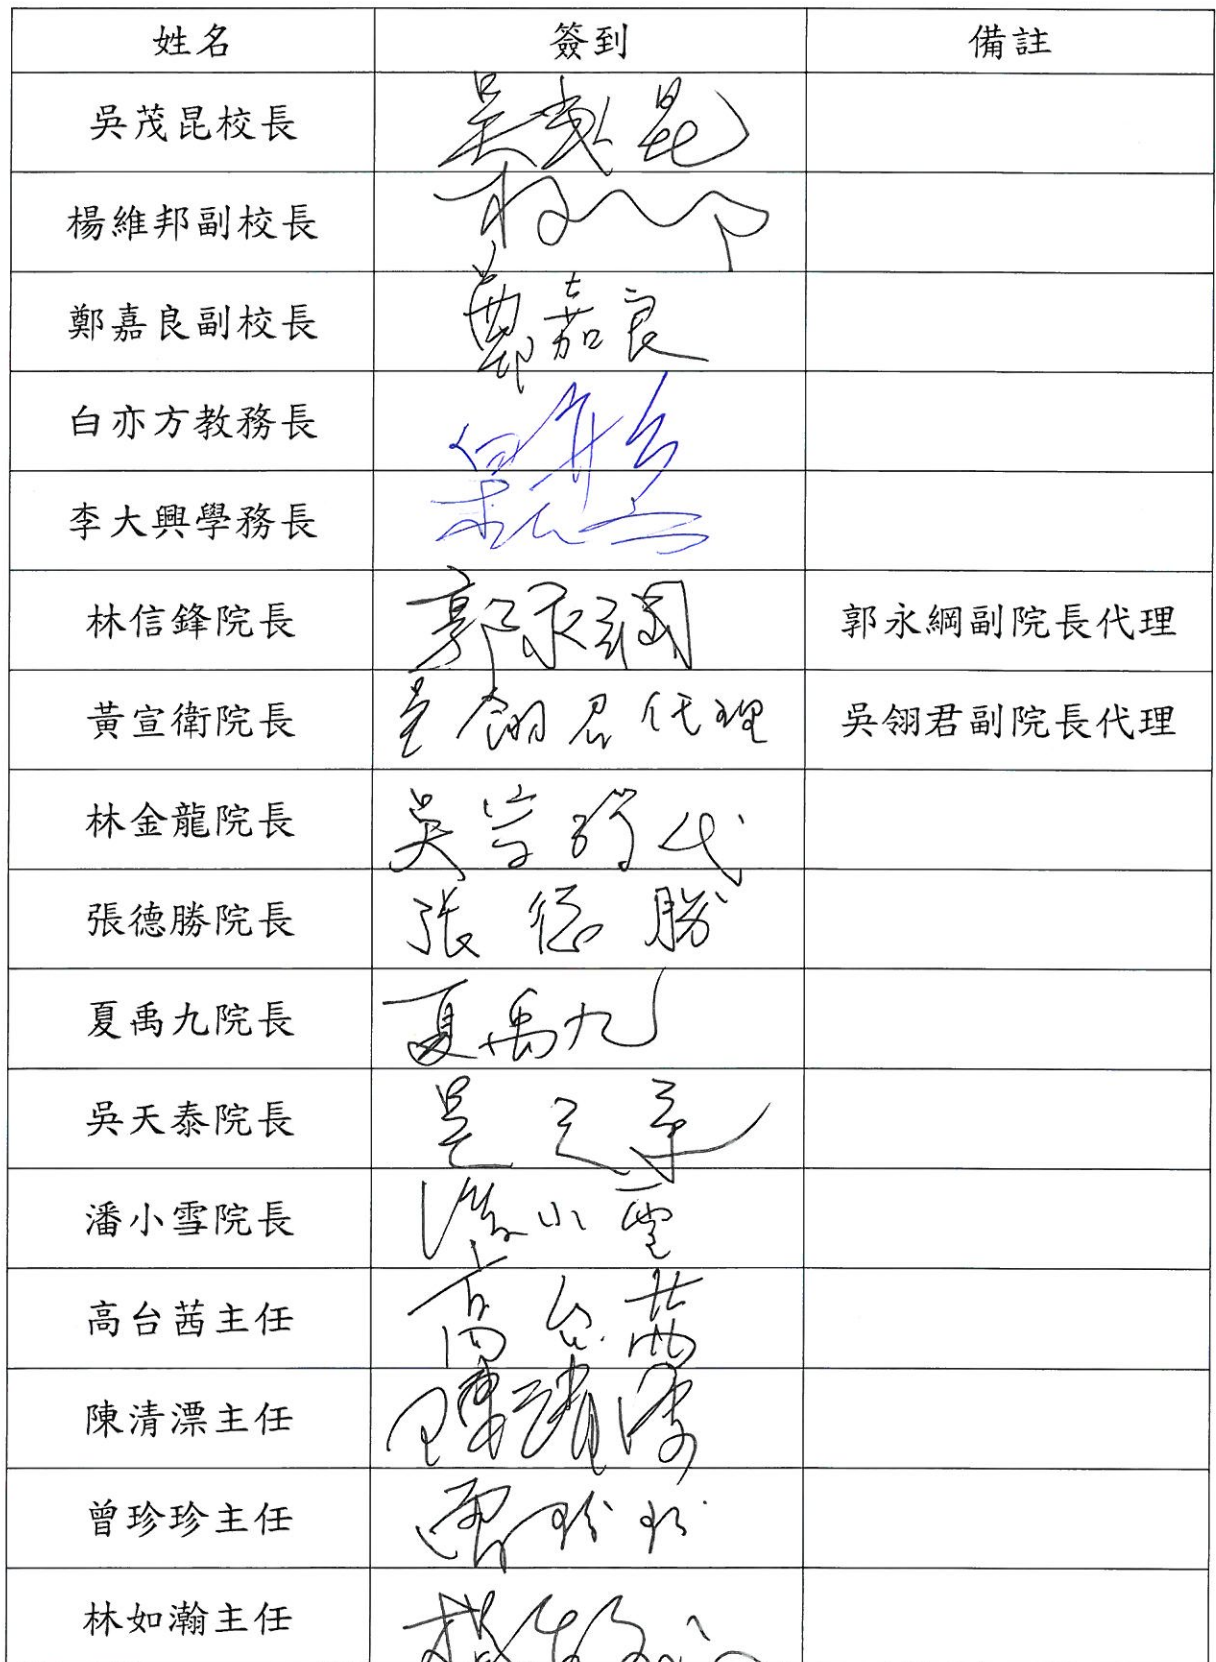 姓名 簽到 備註
吳茂昆校長 吳茂昆
楊維邦副校長
鄭嘉良副校長 鄭嘉良
白亦方教務長
李大興學務長
林信鋒院長 郭永綱 郭永綱副院長代理
黃宣衛院長 吳翎君代理 吳翎君副院長代理
林金龍院長 吳 代
張德勝院長 張德勝
夏禹九院長 夏禹九
吳天泰院長 吳天泰
潘小雪院長 潘小雪
高台茜主任 高台茜
陳清漂主任 陳清漂
曾珍珍主任 曾珍珍
林如瀚主任